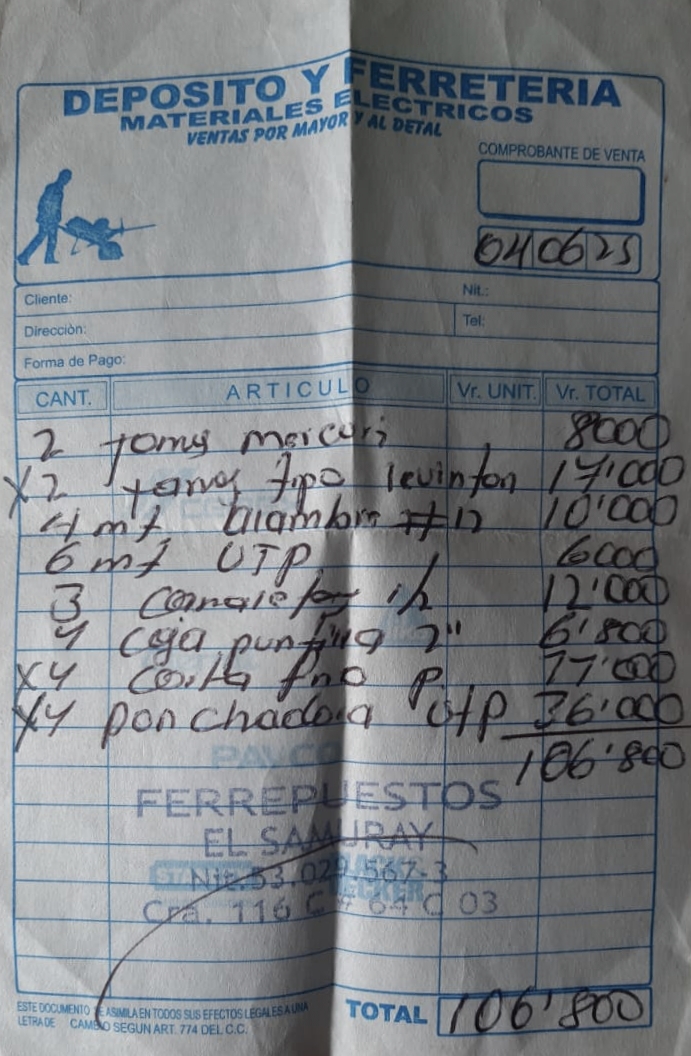 DEPOSITO Y FERRETERIA
MATERIALES ELECTRICOS
VENTAS POR MAYOR Y AL DETAL
COMPROBANTE DE VENTA
04 06 25
Cliente: Nit.:
Direcciòn: Tel:
Forma de Pago:
CANT. ARTICULO Vr. UNIT. Vr. TOTAL
2 tomas mercuri 8000
X2 tomas tipo levinton 17'000
4 mt alambre #12 10'000
6 mt UTP 6000
3 canaletas 1/2 12'000
4 caja 2" 6'800
X4 corta frio P. 11'000
X4 ponchadora utp 36'000
106'800
PAVCO
FERREPUESTOS
EL SAMURAY
Nit. 53.029.567-3
Cra. 116 C # 64 C 03
ESTE DOCUMENTO SE ASIMILA EN TODOS SUS EFECTOS LEGALES A UNA
LETRA DE CAMBIO SEGUN ART. 774 DEL C.C.
TOTAL 106'800